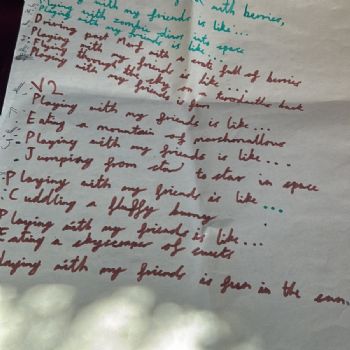 with berries,
Playing with my friends is like...
Playing with zombie dinos into space
with my friends is like...
Driving past Mars with a full of berries
Playing with my friends is like...
Playing through the sky on a back
Playing with my friends is fun
V2
Playing with my friends is like...
Eating a mountain of marshmallows
Playing with my friends is like....
Jumping from star to star in space
Playing with my friends is like ...
Cuddling a fluffy bunny
Playing with my friends is like...
Eating a skyscraper of sweets
Playing with my friends is fun in the